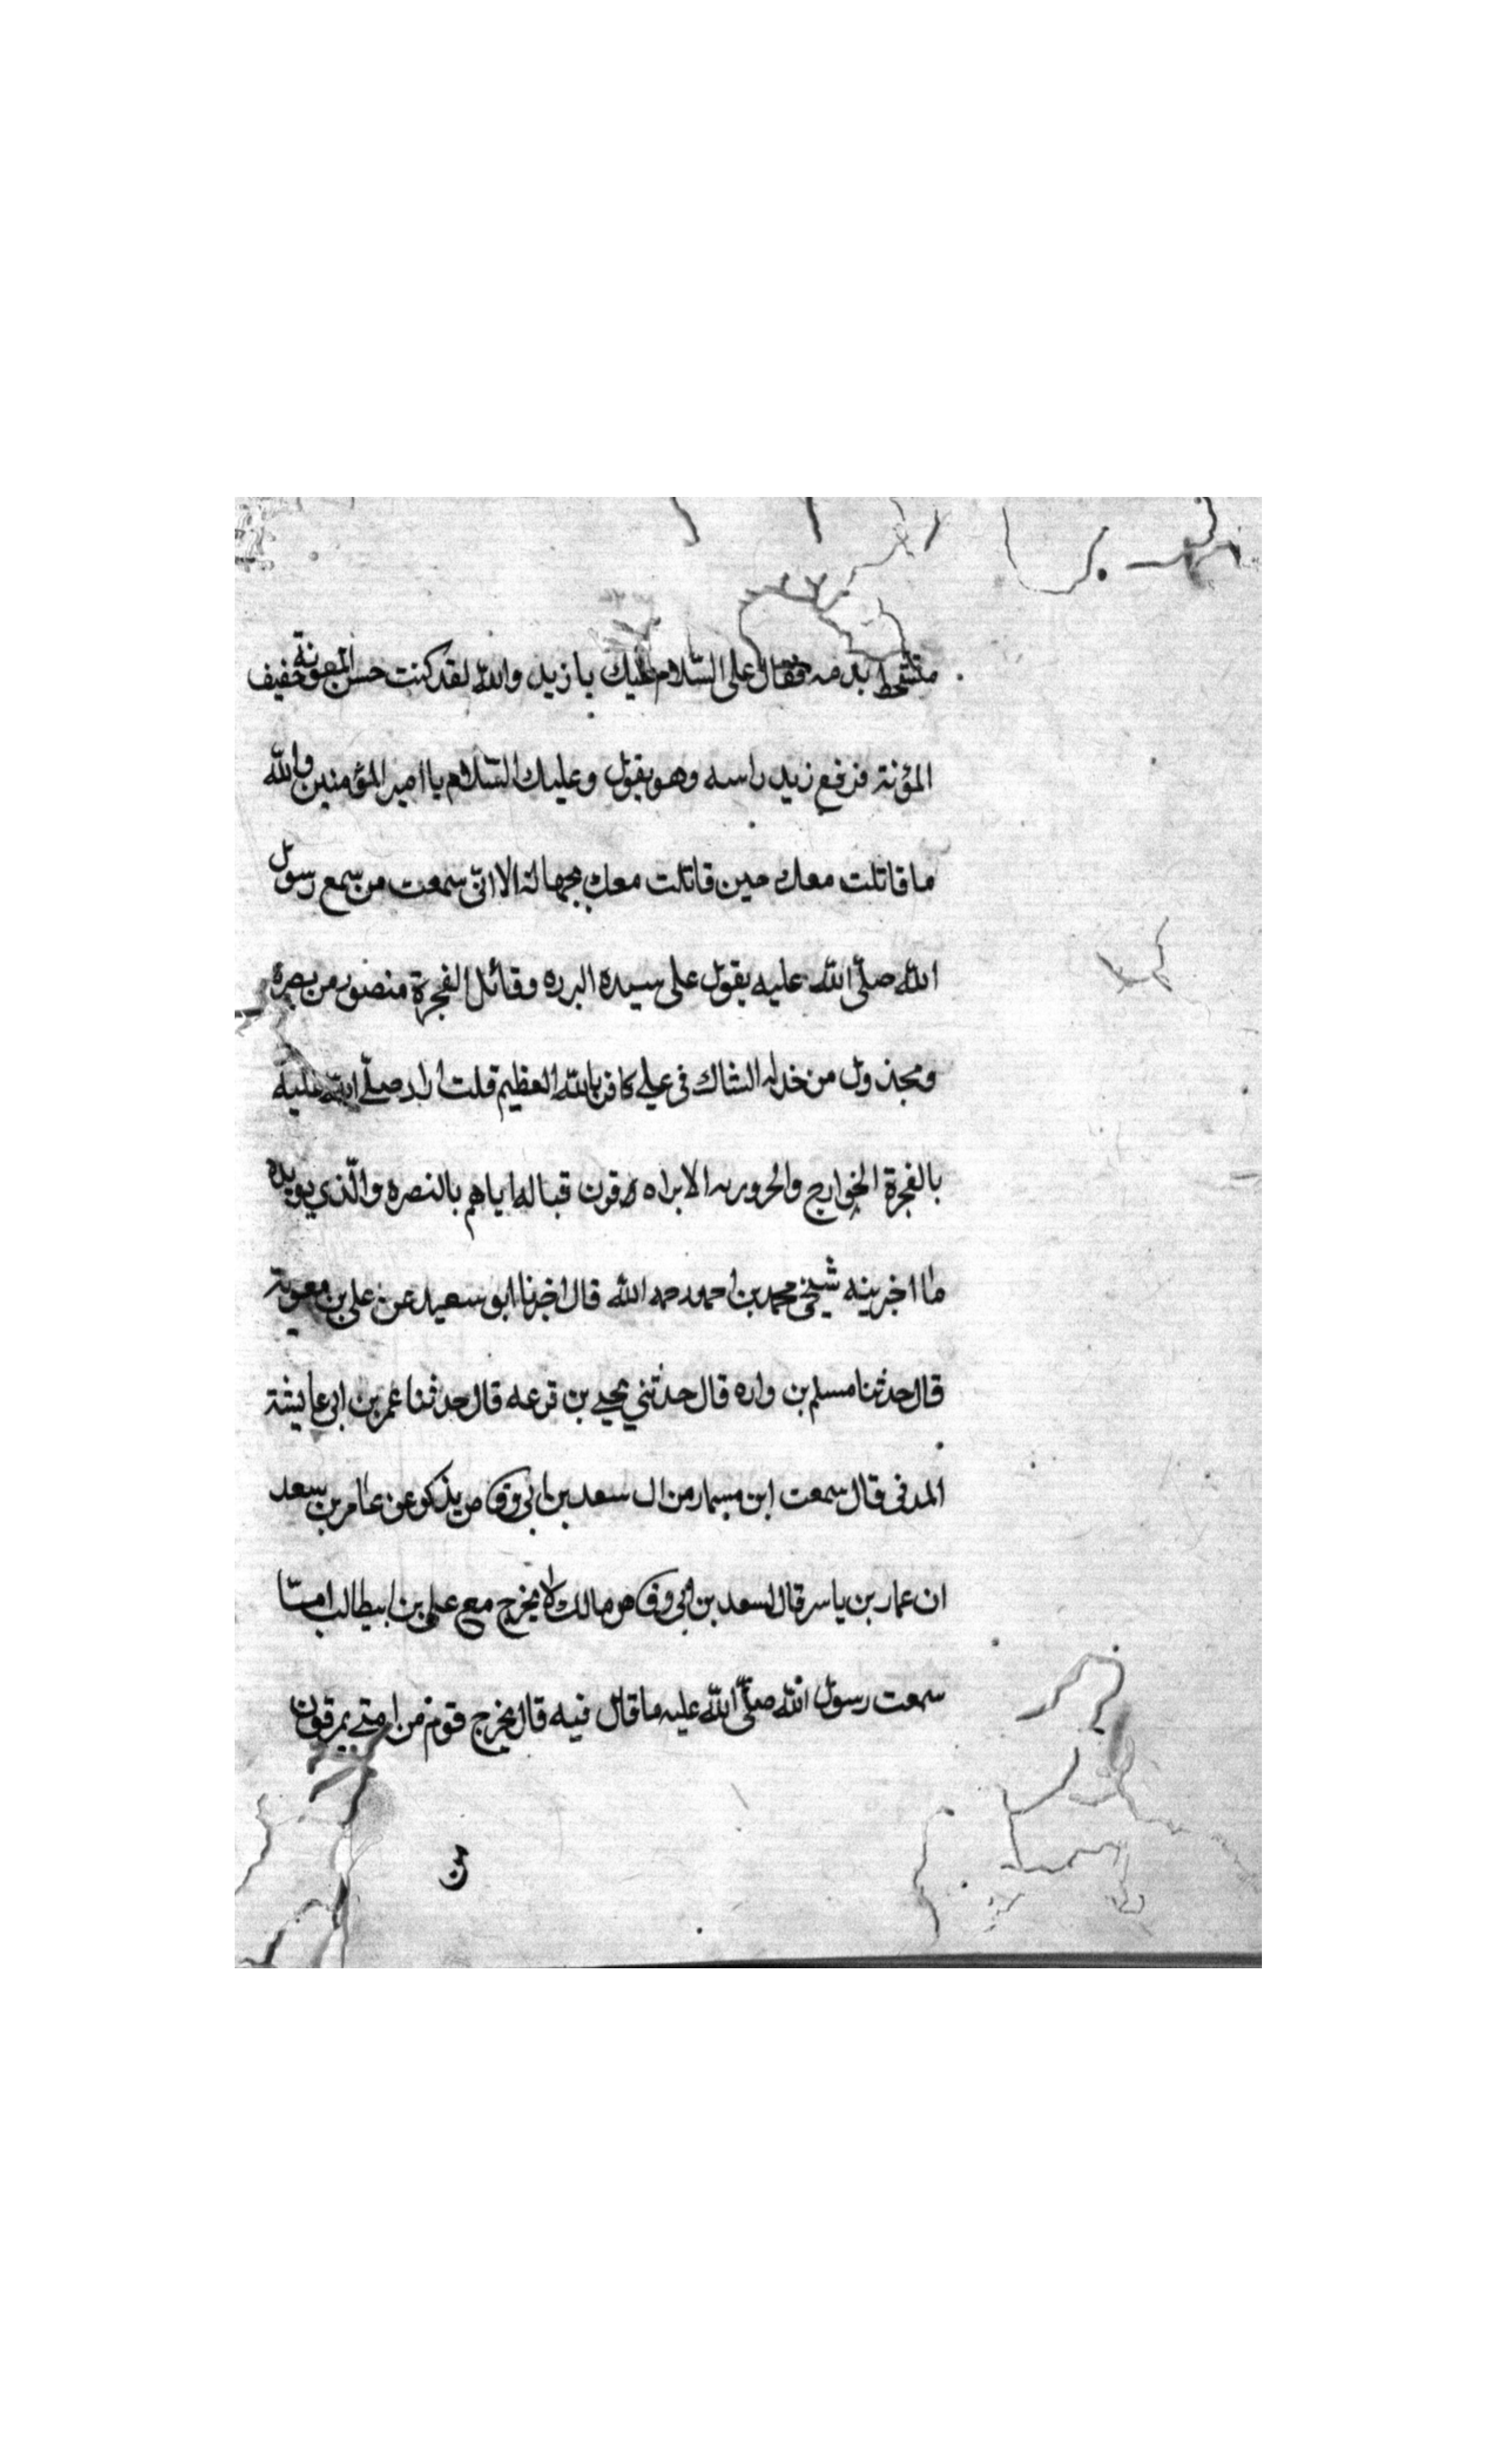 متشحط بدمه فقال على السّلام عليك يا زيد والله لقد كنت حسن المعونة خفيف
المؤنة فرفع زيد راسه وهو يقول وعليك السّلام يا امير المؤمنين والله
ما قاتلت معك حين قاتلت معك بجهالة الا انّى سمعت من سمع رسول
الله صلّى الله عليه يقول على سيده البرره وقاتل الفجرة منصور من نصره
ومخذول من خذله الشاك فى على كافر بالله العظيم قلت اراد صلّى الله عليه
بالفجرة الخوارج والحروريه الا براه قباله اياهم بالنصره والّذي يويده
ما اخبرنيه شيخى محمد بن احمد رحمه الله قال اخبرنا ابو سعيد عن على بن معوية
قال حدثنا مسلم بن واره قال حدثني يحيى بن قزعه قال حدثنا عمر بن ابى عايشة
المدنى قال سمعت ابن مسمار من ال سعد بن ابى وقاص يذكر عن عامر بن سعد
ان عمار بن ياسر قال لسعد بن ابى وقاص مالك لا يخرج مع على بن ابيطالب امتا
سمعت رسول الله صلّى الله عليه ما قال فيه قال يخرج قوم من امتى يمرقون